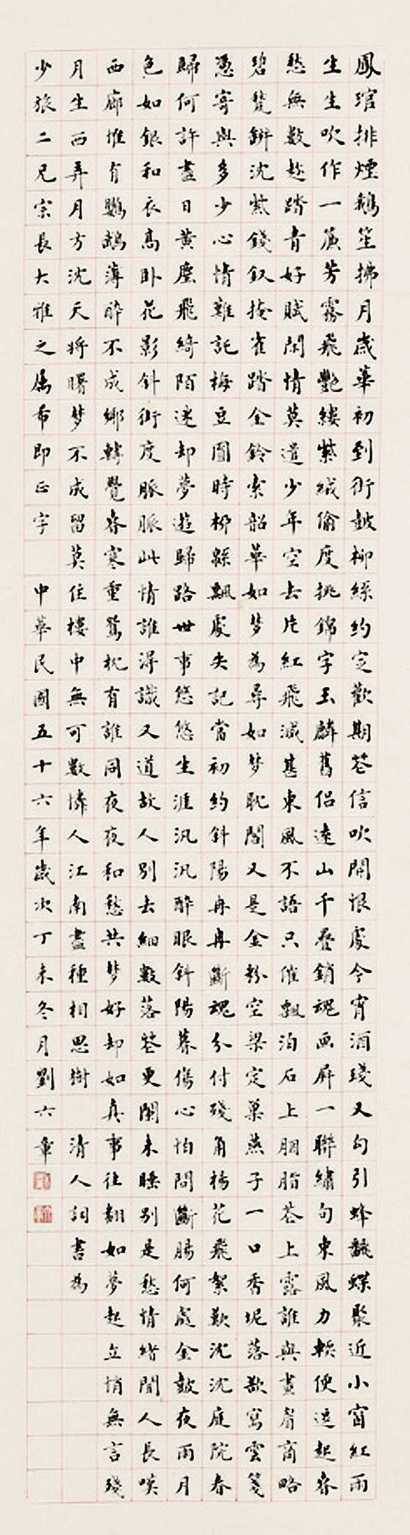 鳳琯排煙鵝笙拂月歲華初到衙鼓柳絲約定歡期花信吹開恨處今宵酒琖又勾引蜂翻蝶聚近小窗紅雨
生生吹作一簾芳霧飛艷縷縈絨偷度挑錦字玉麟舊侶遠山千疊銷魂畫屏一聯繡句東風力輭便逗起春
愁無數趁踏青好賦閒情莫遣少年空去片紅飛減甚東風不語只催飄泊石上胭脂苔上露誰與畫眉商略
碧甃缾沈紫錢釵掩雀踏金鈴索韶華如夢為尋如夢耽閣又是金粉空梁定巢燕子一口香坭落欲寫雲箋
憑寄與多少心情難託梅豆圓時柳緜飄處失記當初約斜陽冉冉斷魂分付殘角楊花飛絮歎沈沈庭院春
歸何許盡日黃塵飛綺陌迷卻夢遊歸路世事悠悠生涯汎汎醉眼斜陽暮傷心怕問斷腸何處金鼓夜雨月
色如銀和衣高卧花影斜街度脈脈此情誰得識又道故人別去細數落花更闌未睡別是愁情緒聞人長嘆
西廊惟有鸚鵡薄醉不成鄉轉覺春寒重鴛枕有誰同夜夜和愁共夢好卻如真事往翻如夢起立悄無言殘
月生西弄月方沈天將曙夢不成留莫住樓中無可數憐人江南盡種相思樹 清人詞書為
少旅二兄宗長大雅之屬希即正字 中華民國五十六年歲次丁未冬月劉六章